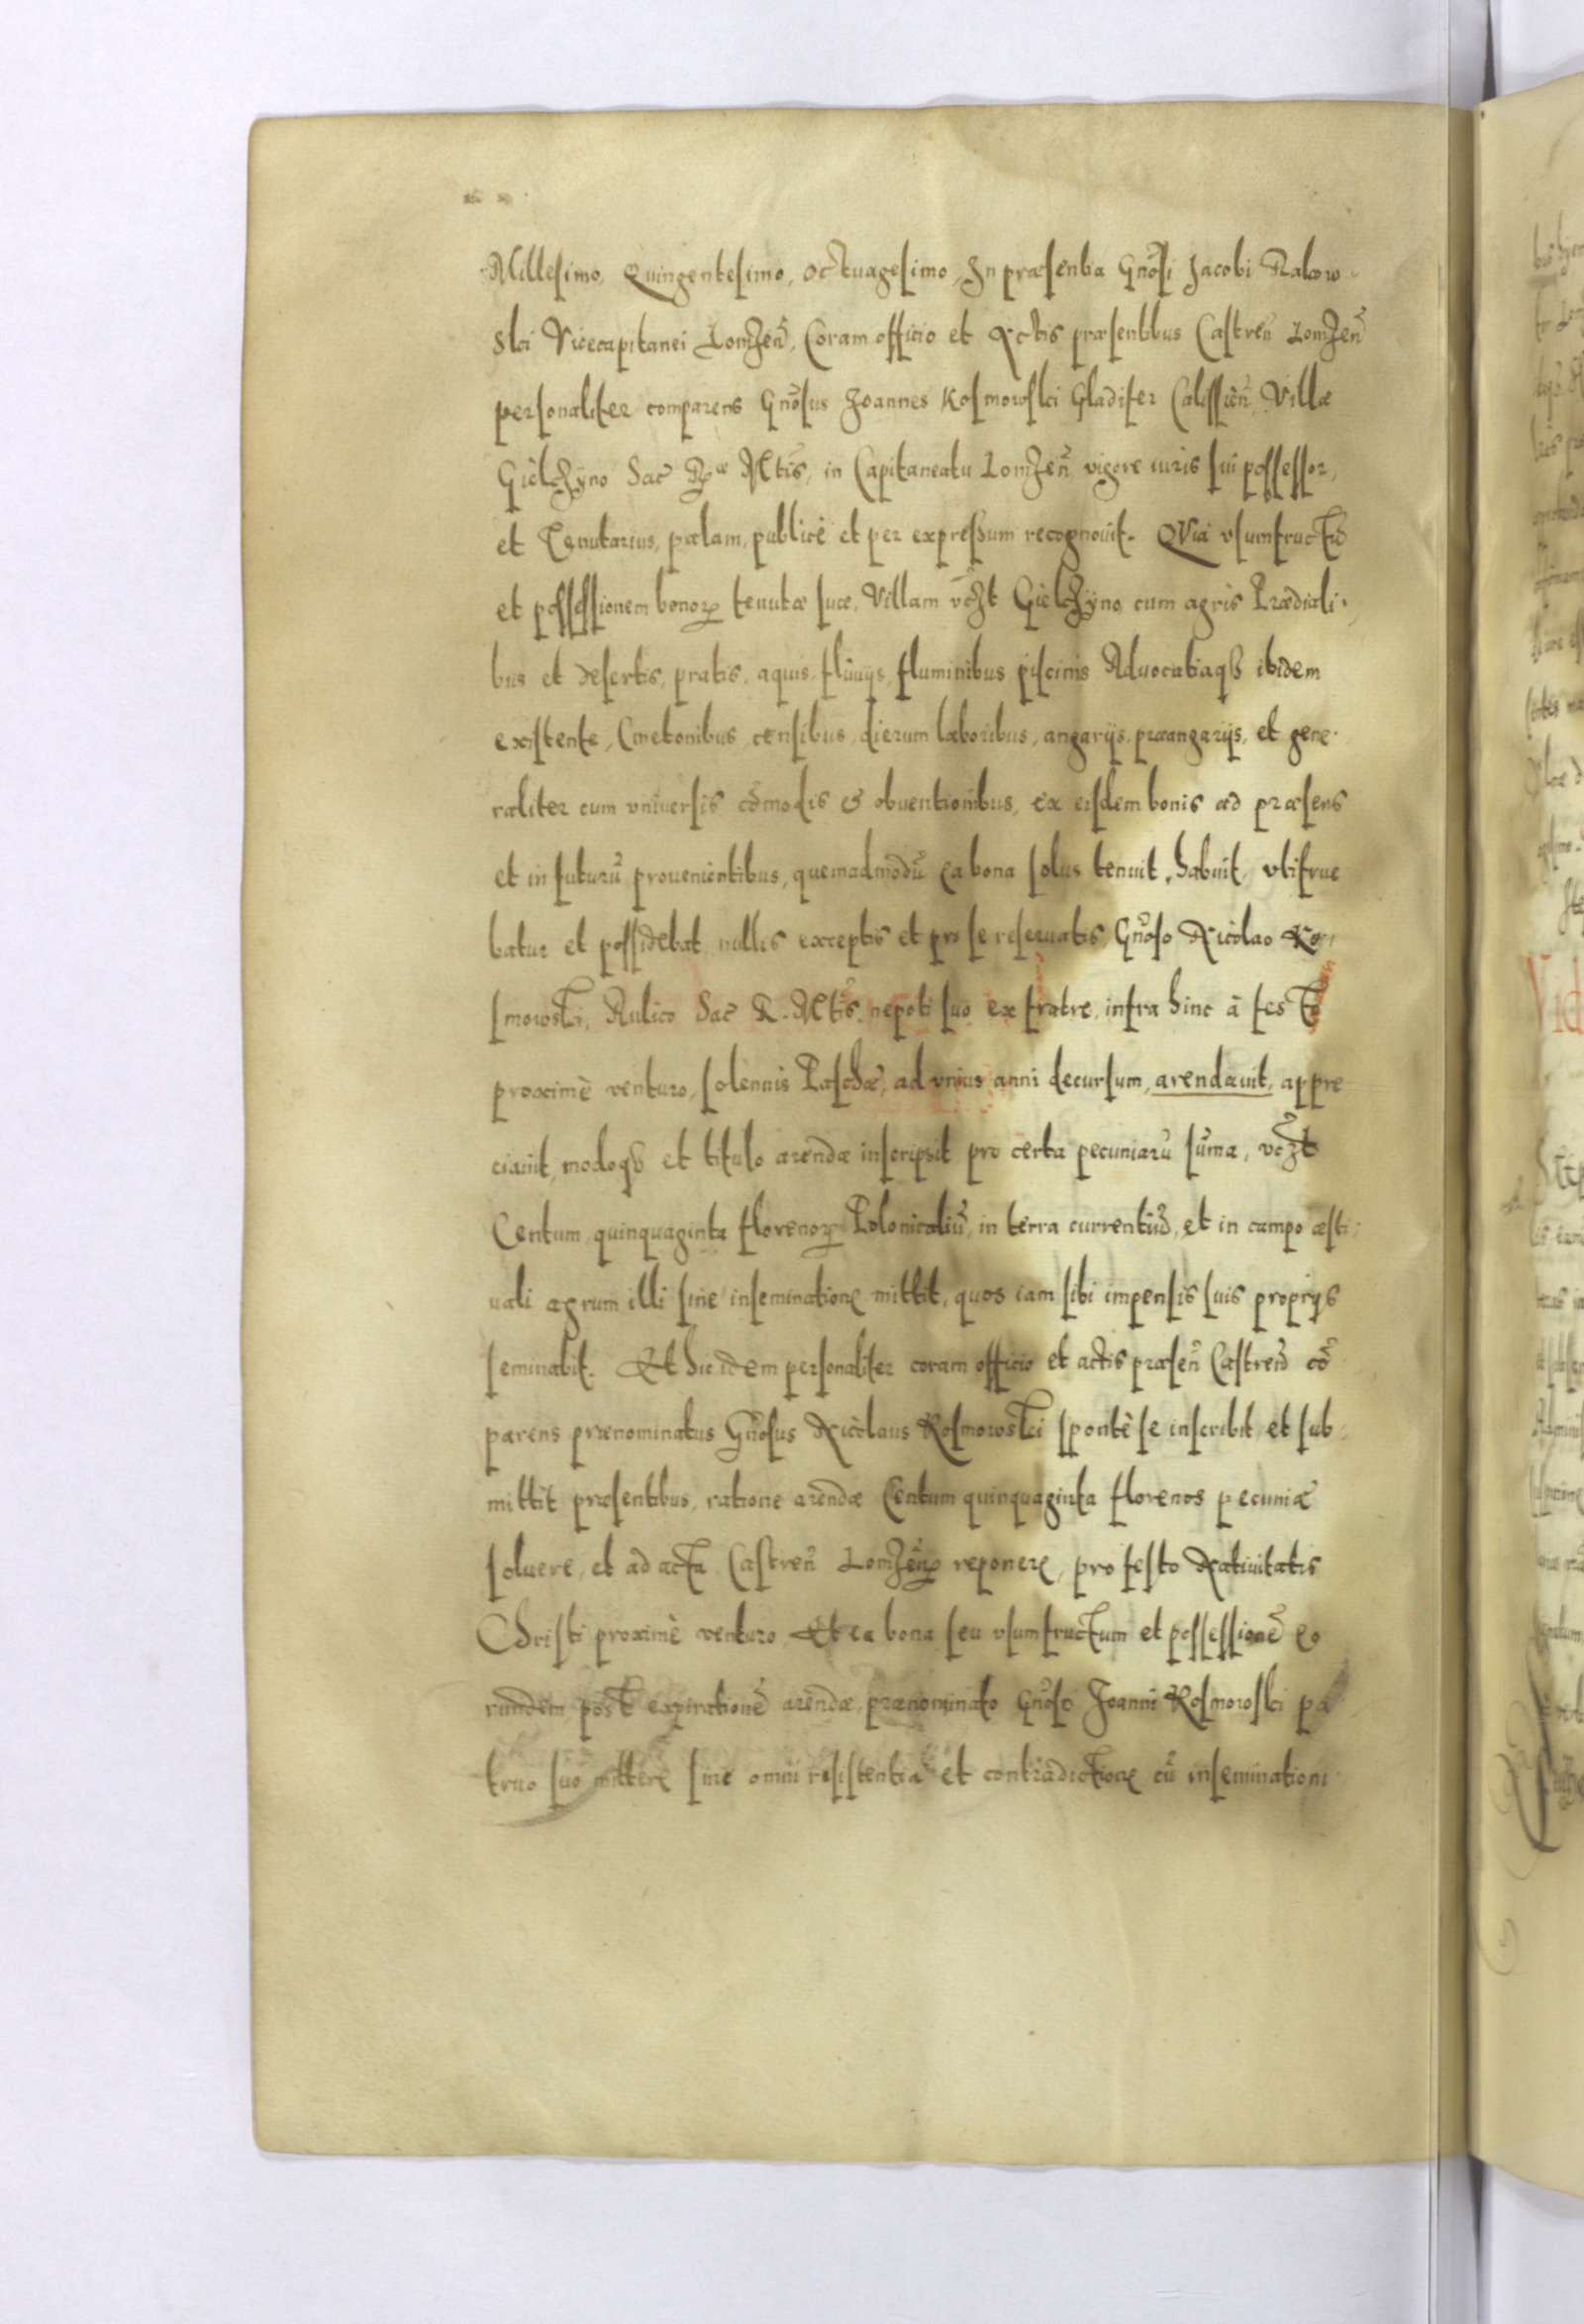 Millesimo, Quingentesimo, octuagesimo, In præsentia Gnõsi Jacobi Rakow-
ski Vicecapitanei Lomzeñ, Coram officio et Actis præsentibus Castreñ Lomzeñ
personaliter comparens Gnõsus Joannes Kosmowski Gladifer Calissieñ, Villæ
Giełczyno Sac̃ Rᵃᵉ Mtis, in Capitaneatu Lomzeñ vigore iuris sui possessor,
et Tenutarius, palam, publicè et per expressum recognouit. Quia vsumfructũ
et possessionem bonorꝝ tenutæ suæ, Villam vc̃zt Giełczyno cum agris Prædiali-
bus et desertis, pratis, aquis, fluuijs, fluminibus piscinis Aduocatiaqꝫ ibidem
existente, Cmetonibus, censibus, dierum laboribus, angarijs, præangarijs, et gene-
raliter cum vniuersis cõmodis & obuentionibus, ex eisdem bonis ad præsens
et in futurũ prouenientibus, quemadmodũ ea bona solus tenuit, habuit, vtifrue
batur et possidebat nullis exceptis et pro se reseruatis Gnõso Nicolao Ko-
smowski, Aulico Sac̃ R. Mtis, nepoti suo ex fratre, infra hinc à festo
proximè venturo, solennis Paschæ, ad vnius anni decursum, arendauit, appre
ciauit, modoqꝫ et titulo arendæ inscripsit pro certa pecuniarũ sũma, vc̃zt
Centum, quinquaginta florenorꝝ Polonicaliũ, in terra currentiũ, et in campo æsti-
uali agrum illi sine inseminatione mittit, quos iam sibi impensis suis proprijs
seminabit. Et hic idem personaliter coram officio et actis præseñ Castreñ cõ
parens prænominatus Gnõsus Nicolaus Kosmowski spontè se inscribit et sub-
mittit præsentibus, ratione arendæ Centum quinquaginta florenos pecuniæ
soluere, et ad acta Castreñ Lomzeñ reponere, pro festo Natiuitatis
Christi proximè venturo, Et ea bona seu vsumfructum et possessionẽ eo
rundem post expirationẽ arendæ, prænominato Gnõso Joanni Kosmowski pa
truo suo mittere sine omni resistentia et contradictione cũ inseminatione